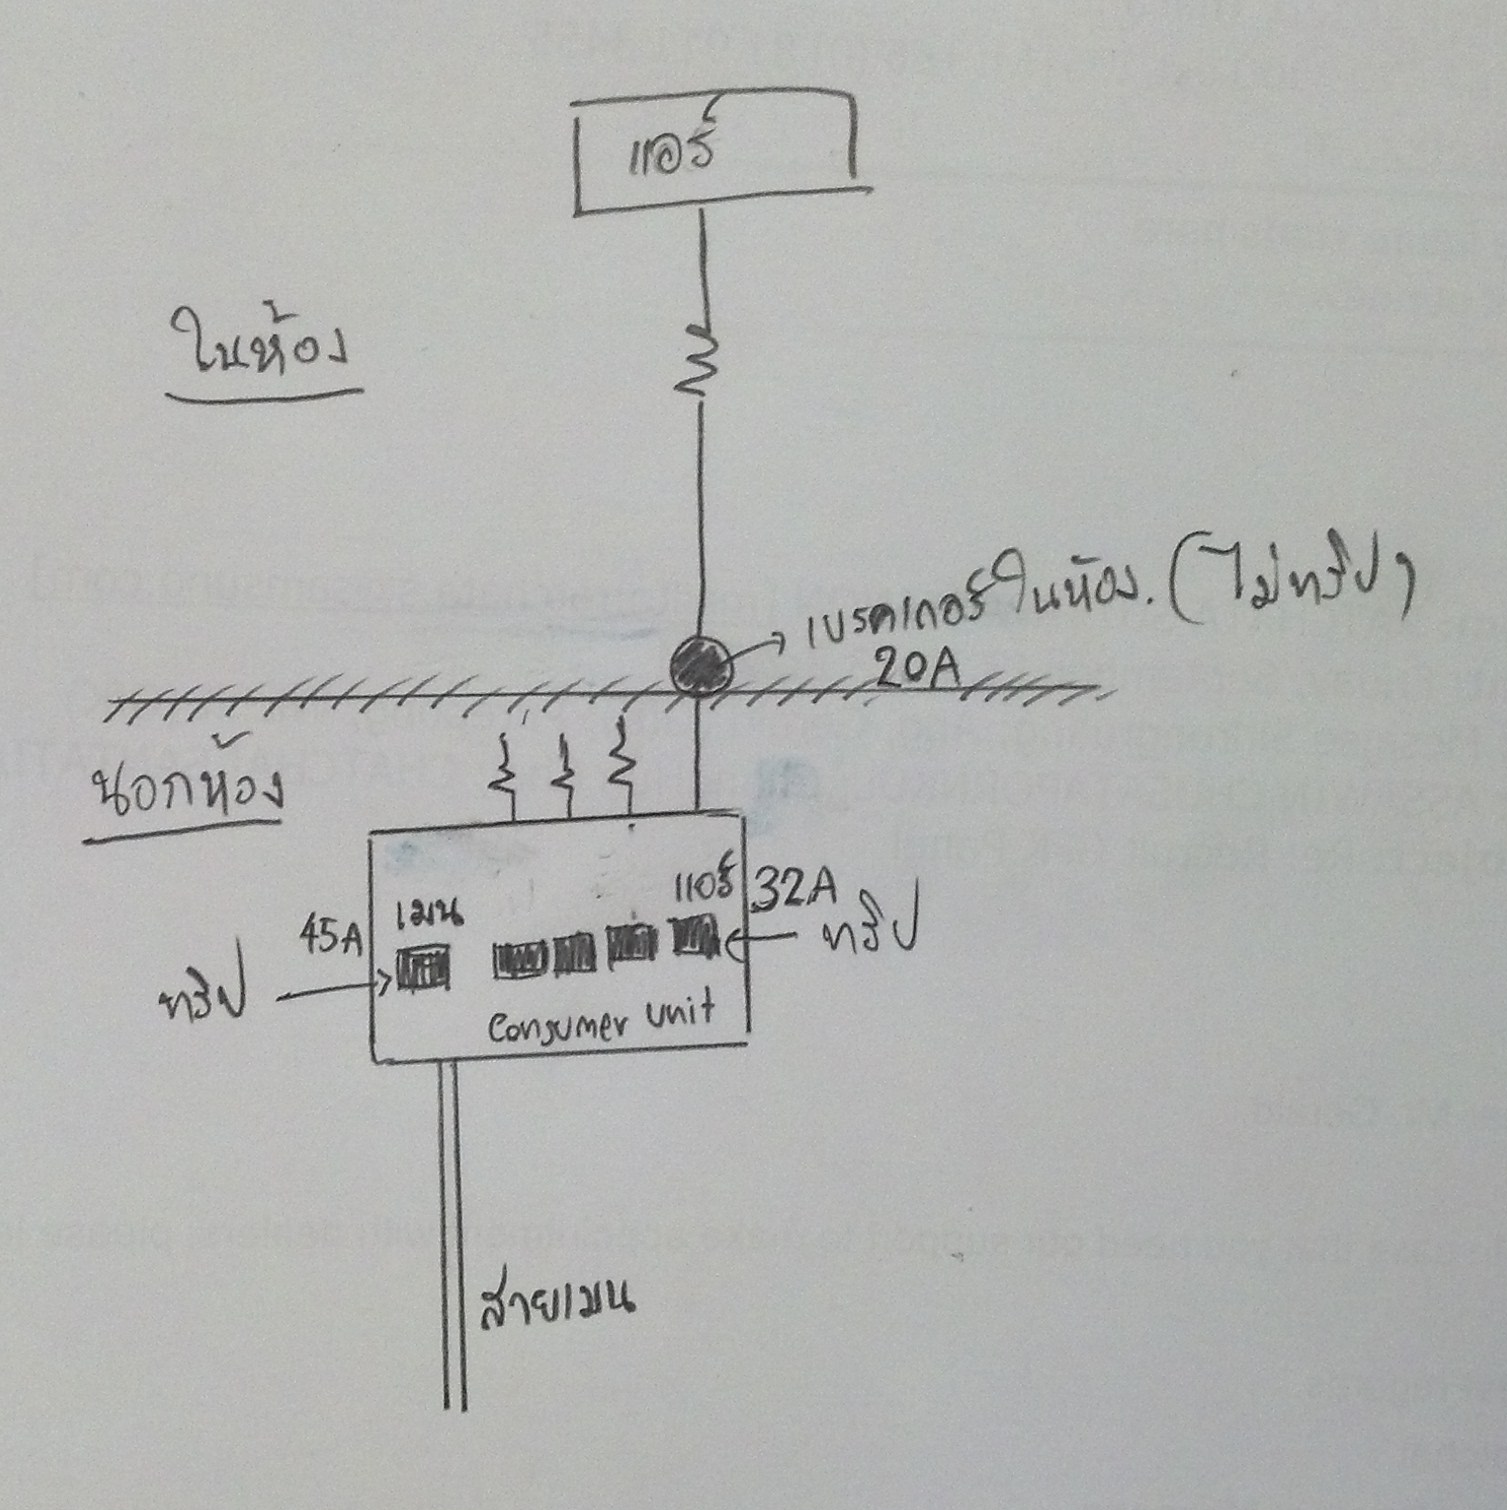 แอร์
ในห้อง
เบรคเกอร์ในห้อง. (ไม่ทริป)
20A
นอกห้อง
แอร์ 32A
เมน
45A
ทริป
ทริป
Consumer unit
สายเมน